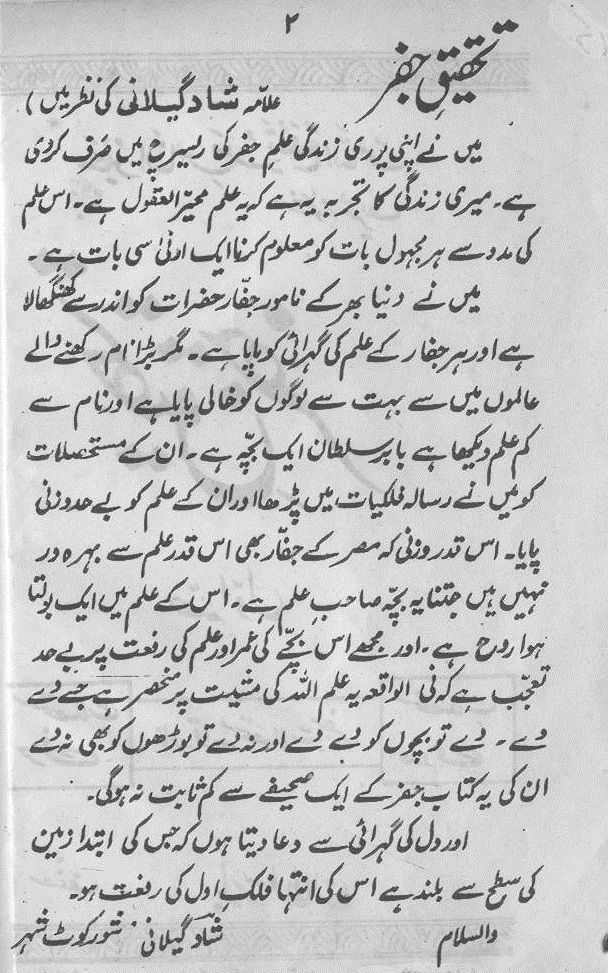 ۲
تحقیقِ جفر
علامہ شاد گیلانی کی نظر میں )
میں نے اپنی پوری زندگی علمِ جفر کی ریسرچ میں صَرف کر دی
ہے ۔ میری زندگی کا تجربہ یہ ہے کہ یہ علم محیّر العقول ہے ۔ اس علم
کی مدد سے ہر مجہول بات کو معلوم کرنا ایک ادنیٰ سی بات ہے ۔
میں نے دنیا بھر کے نامور جفّار حضرات کو اندر سے کھنگھالا
ہے اور ہر جفار کے علم کی گہرائی کو پایا ہے ۔ مگر بڑا نام رکھنے والے
عالموں میں سے بہت سے لوگوں کو خالی پایا ہے اور نام سے
کم علم دیکھا ہے بابر سلطان ایک بچّہ ہے ۔ ان کے مستحصلات
کو میں نے رسالہ فلکیات میں پڑھا اور ان کے علم کو بے حد وزنی
پایا ۔ اس قدر وزنی کہ مصر کے جفّار بھی اس قدر علم سے بہرہ ور
نہیں ہیں جتنا یہ بچّہ صاحبِ علم ہے ۔ اس کے علم میں ایک بولتا
ہوا روح ہے ۔ اور مجھے اس بچّے کی عمر اور علم کی رفعت پر بے حد
تعجّب ہے کہ فی الواقعہ یہ علم اللہ کی مشیت پر منحصر ہے جسے دے
دے ۔ دے تو بچوں کو دے دے اور نہ دے تو بوڑھوں کو بھی نہ دے
ان کی یہ کتاب جفر کے ایک صحیفے سے کم ثابت نہ ہوگی ۔
اور دل کی گہرائی سے دعا دیتا ہوں کہ جس کی ابتدا زمین
کی سطح سے بلند ہے اس کی انتہا فلکِ اول کی رفعت ہو ۔
والسلام شاد گیلانی شورکوٹ شہر